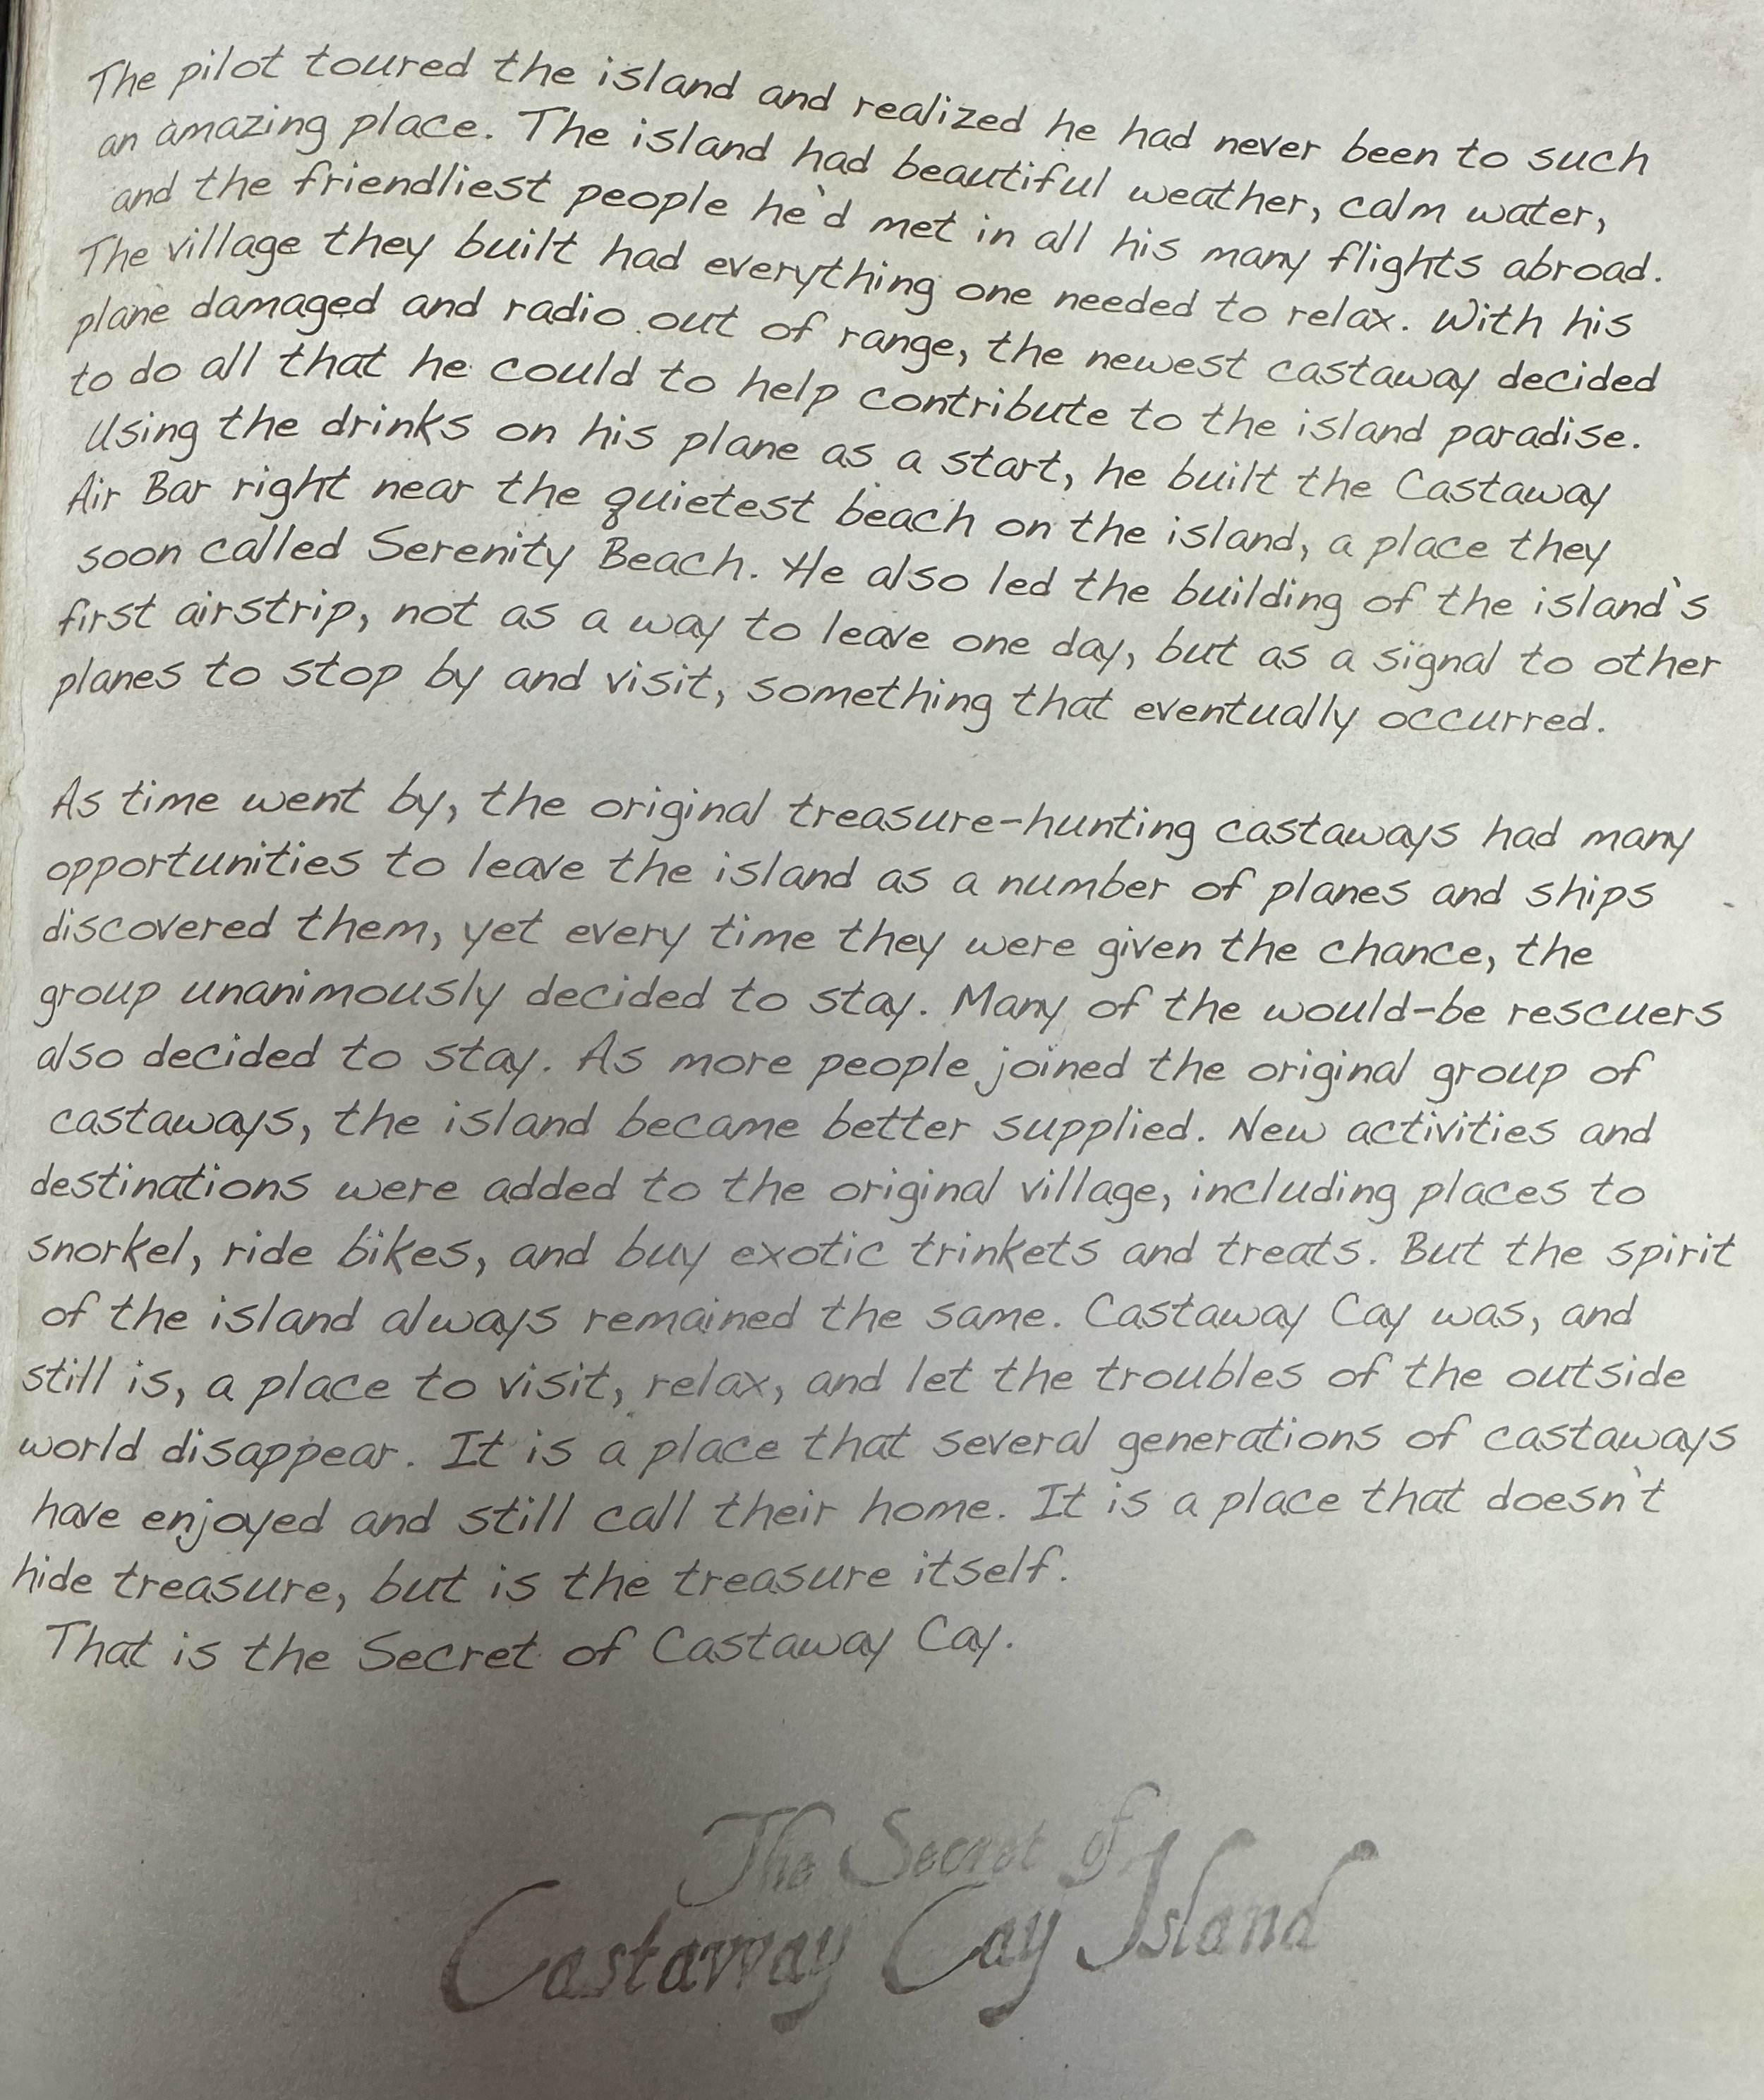 The pilot toured the island and realized he had never been to such
an amazing place. The island had beautiful weather, calm water,
and the friendliest people he'd met in all his many flights abroad.
The village they built had everything one needed to relax. With his
plane damaged and radio out of range, the newest castaway decided
to do all that he could to help contribute to the island paradise.
Using the drinks on his plane as a start, he built the Castaway
Air Bar right near the quietest beach on the island, a place they
soon called Serenity Beach. He also led the building of the island's
first airstrip, not as a way to leave one day, but as a signal to other
planes to stop by and visit, something that eventually occurred.
As time went by, the original treasure-hunting castaways had many
opportunities to leave the island as a number of planes and ships
discovered them, yet every time they were given the chance, the
group unanimously decided to stay. Many of the would-be rescuers
also decided to stay. As more people joined the original group of
castaways, the island became better supplied. New activities and
destinations were added to the original village, including places to
snorkel, ride bikes, and buy exotic trinkets and treats. But the spirit
of the island always remained the same. Castaway Cay was, and
still is, a place to visit, relax, and let the troubles of the outside
world disappear. It is a place that several generations of castaways
have enjoyed and still call their home. It is a place that doesn't
hide treasure, but is the treasure itself.
That is the Secret of Castaway Cay.
The Secret of
Castaway Cay Island